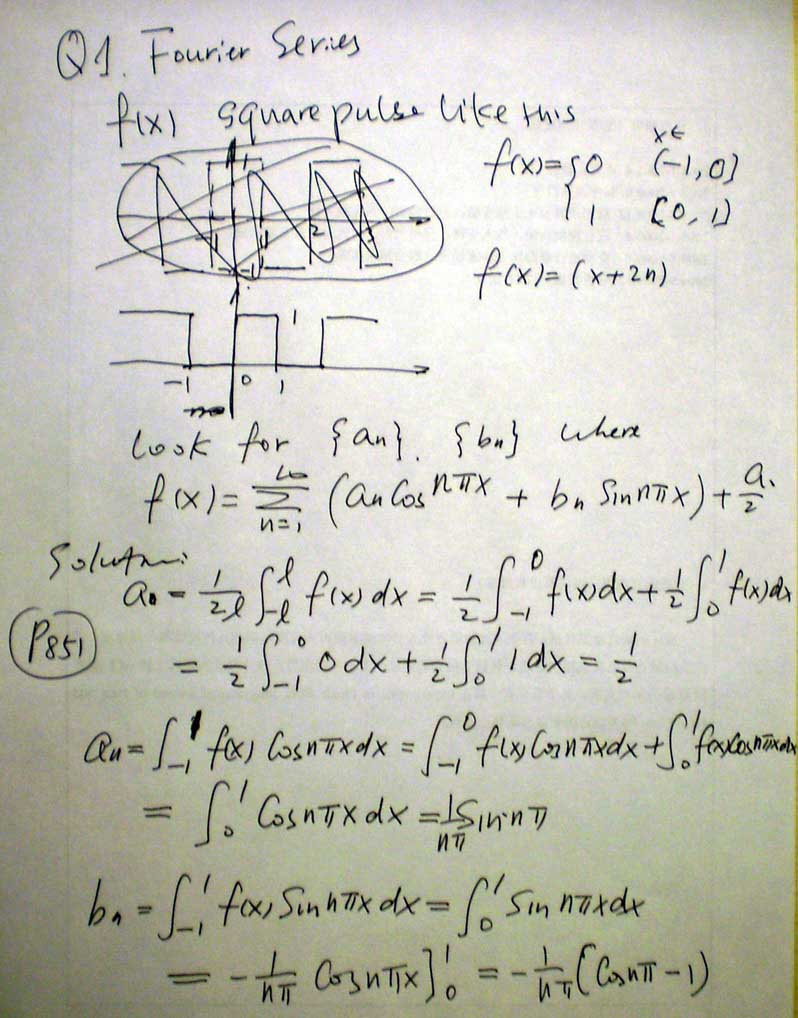 Q1. Fourier Series
f(x) square pulse like this
x∈
f(x)={0 (-1,0]
{1 [0,1]
f(x)=(x+2n)
1
-1 1 2 3
-1
1
-1 0 1
Look for {an}, {bn} where
f(x)=∑_{n=1}^{∞} (an Cos nπx + bn Sin nπx)+a₀/2
Solution:
a₀ = 1/2l ∫_{-l}^{l} f(x) dx = 1/2 ∫_{-1}^{0} f(x)dx + 1/2 ∫_0^1 f(x)dx
P851
= 1/2 ∫_{-1}^{0} 0 dx + 1/2 ∫_0^1 1 dx = 1/2
an = ∫_{-1}^{1} f(x) Cos nπx dx = ∫_{-1}^{0} f(x) Cos nπx dx + ∫_0^1 f(x) cos nπx dx
= ∫_0^1 Cos nπx dx = 1/nπ Sin nπ
bn = ∫_{-1}^{1} f(x) Sin nπx dx = ∫_0^1 Sin nπx dx
= -1/nπ Cos nπx]_0^1 = -1/nπ (Cos nπ - 1)